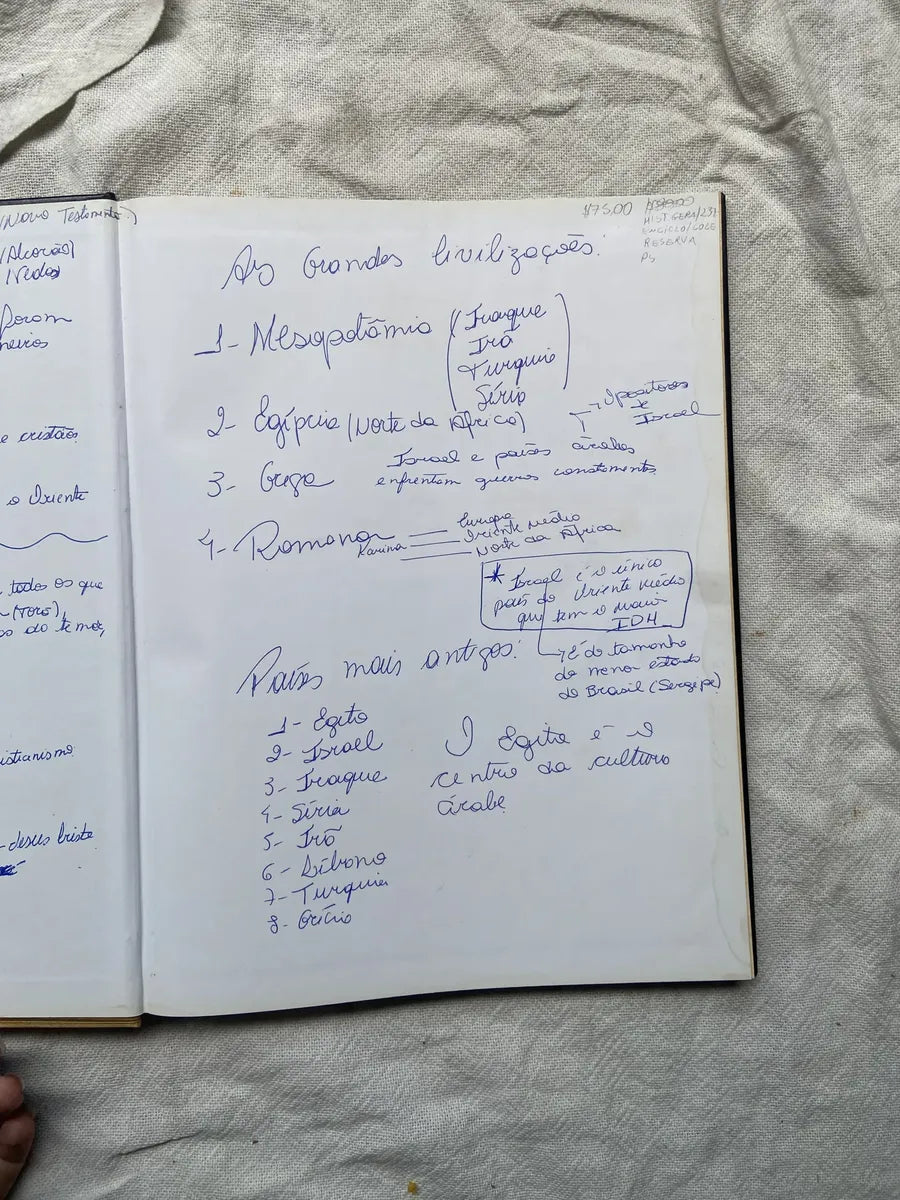 (Novo Testamento)
(Alcorão)
(Vedas)
foram
e cristão
o Oriente
todos os que
(Torá),
do temor,
istianismo
Jesus Cristo
$75,00
HIST GERAL/237
RESERVA
As Grandes Civilizações:
1- Mesopotâmia (Iraque
Irã
Turquia
Síria)
2- Egípcia (Norte da África)
→ Opositores
a
Israel
3- Grega
Israel e países árabes
enfrentam guerras constamente
4- Romana
Karina
Europa
Oriente Médio
Norte da África
* Israel é o único
país do Oriente Médio
que tem o maior
IDH
→ é do tamanho
do menor estado
do Brasil (Sergipe)
Países mais antigos:
1- Egito
2- Israel
3- Iraque
4- Síria
5- Irã
6- Líbano
7- Turquia
8- Grécia
O Egito é o
centro da cultura
árabe